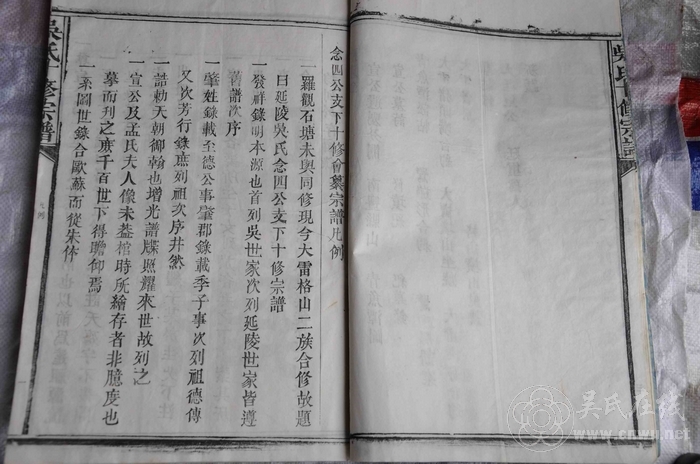 吳氏十修宗譜
念四公支下十修會纂宗譜凡例
一羅觀石塘未與同修現今大雷格山二族合修故題
曰延陵吳氏念四公支下十修宗譜
一發祥錄明本源也首列吳世家次列延陵世家皆遵
舊譜次序
一肇姓錄載至德公事肇郡錄載季子事次列祖德傳
又次芳行錄庶列祖次序井然
一誥勅天朝御翰也增光譜牒照耀來世故列之
一宣公及孟氏夫人像未蓋棺時所繪存者非臆度也
摹而刋之庶千百世下得瞻仰焉
一系圖世錄合歐蘇而從朱体
吳氏 修宗譜
凡例
吴氏在线
www.cnwu.net